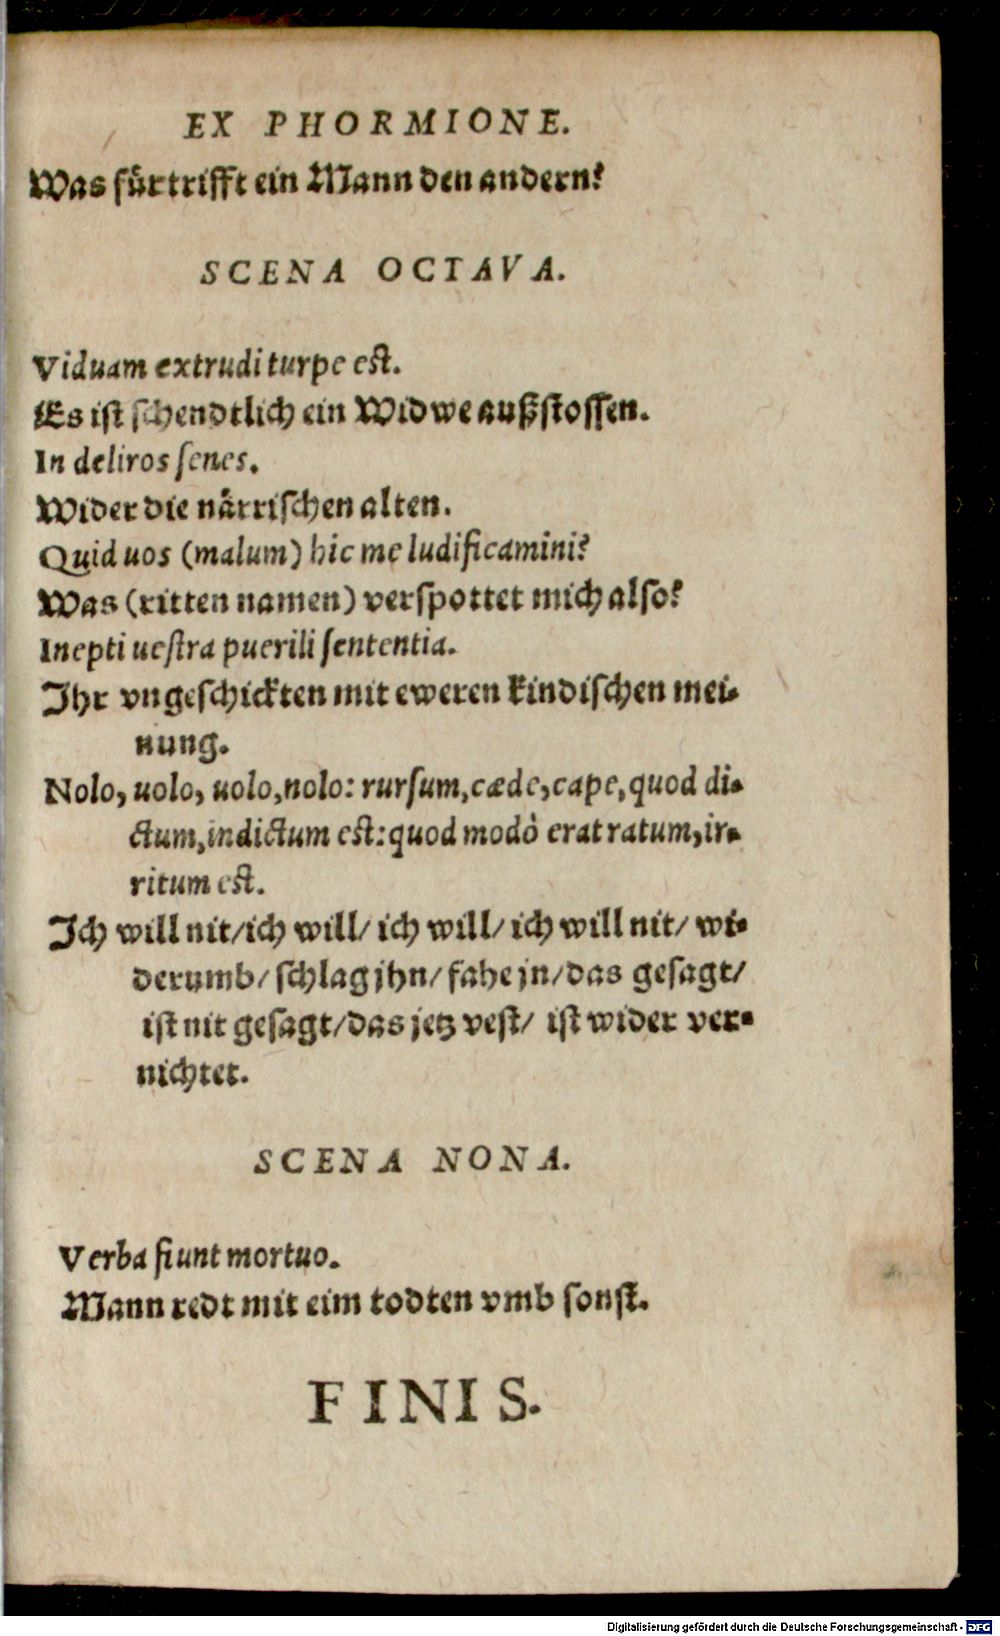 EX PHORMIONE.
Was fürtrifft ein Mann den andern?
SCENA OCTAVA.
Viduam extrudi turpe est.
Es ist schendtlich ein Widwe außstossen.
In deliros senes.
Wider die närrischen alten.
Quid uos (malum) hic me ludificamini?
Was (ritten namen) verspottet mich also?
Inepti uestra puerili sententia.
Ihr vngeschickten mit eweren kindischen mei-
nung.
Nolo, uolo, uolo, nolo: rursum, cæde, cape, quod di-
ctum, indictum est: quod modò erat ratum, ir-
ritum est.
Ich will nit/ ich will/ ich will/ ich will nit/ wi-
derumb/ schlag jhn/ fahe jn/ das gesagt/
ist nit gesagt/ das jetz vest/ ist wider ver-
nichtet.
SCENA NONA.
Verba fiunt mortuo.
Mann redt mit eim todten vmb sonst.
FINIS.
Digitalisierung gefördert durch die Deutsche Forschungsgemeinschaft - DFG